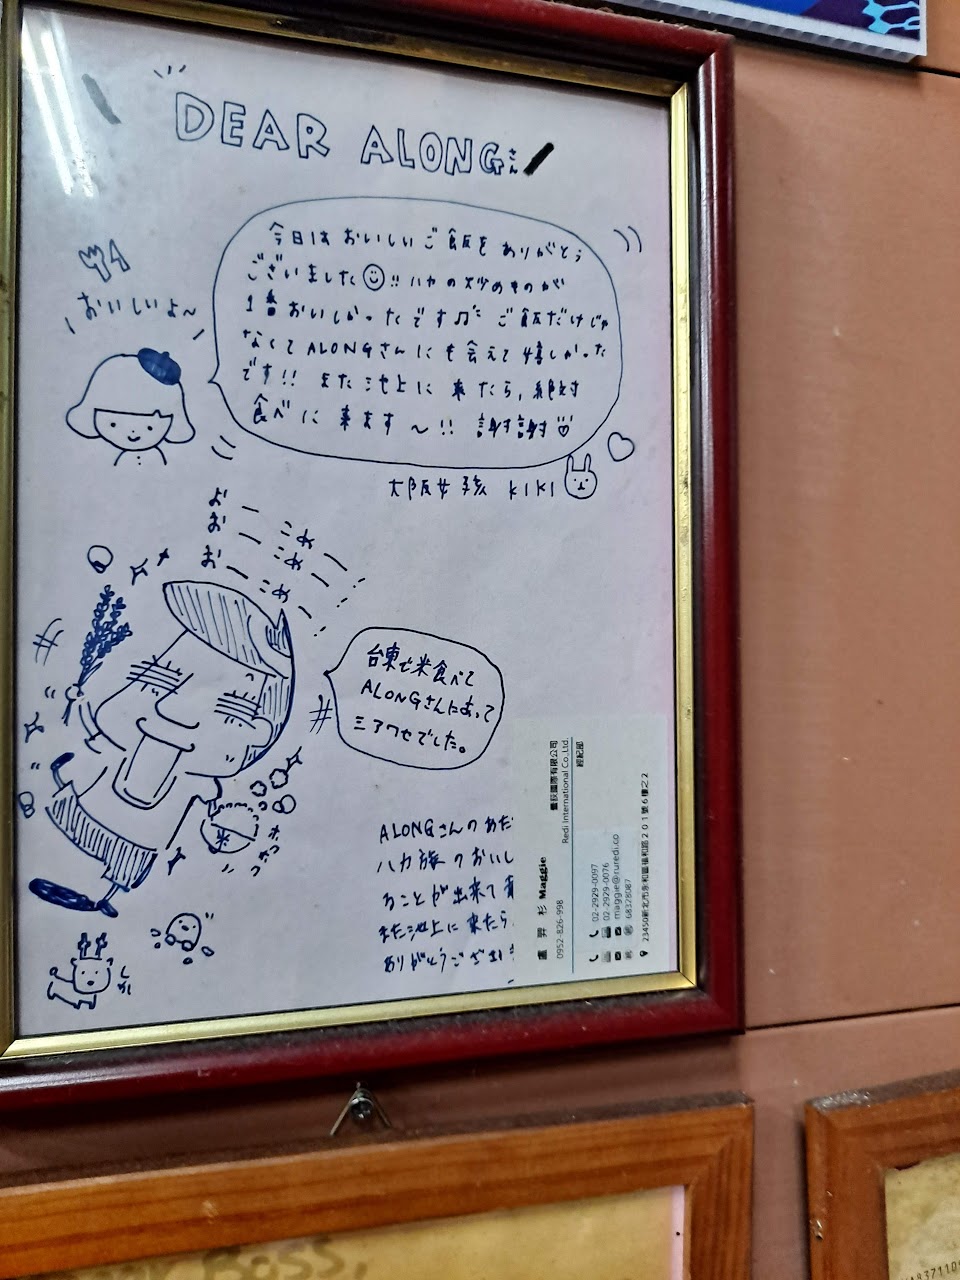 DEAR ALONGさん
今日はおいしいご飯をありがとう
ございました!! ハカの炒めものが
1番おいしかったです♫ ご飯だけじゃ
なくてALONGさんにも会えて嬉しかった
です!! また池上に来たら,絶対
食べに来ます〜!! 謝謝
おいしいよ〜
大阪女孩 KIKI
おーこめー
おーこめー
おーこめー
台東で米食べて
ALONGさんにあって
シアワセでした。
米
ホカ
ホカ
しか
ALONGさんのあた
ハカ族のおいし
ることが出来て
また池上に来たら
ありがとうござい
盧 羿 杉 Maggie
0952-826-998
Redi International Co.,Ltd.
國際有限公司
經紀部
02-2929-0097
02-2929-0076
maggie@ruredi.co
68378087
23450新北市永和區福和路201號6樓之2
BOSS,